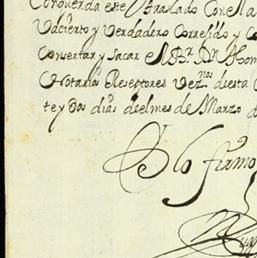 Concuerda este traslado con el a
va cierto y verdadero corregido y co
consertar y sacar el Br. Dn. Thom
Notarios Resetores vez.nos desta C
te y dos dias del mes de Marzo d
lo firmo